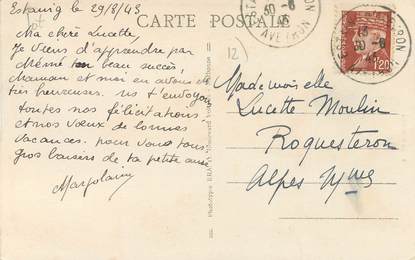 Estaing le 29/8/43
CARTE POSTALE
Ma chère Lucette,
Je viens d'apprendre par
Mémé ton beau succès,
Maman et moi en avons été
très heureuses. ns t'envoyons
toutes nos félicitations
et nos vœux de bonnes
vacances. pour vous tous
gros baisers de ta petite amie
Margolaine
12
AVEYRON
30 -8
1F20
Mademoiselle
Lucette Moulin
Roquesteron
Alpes Mmes